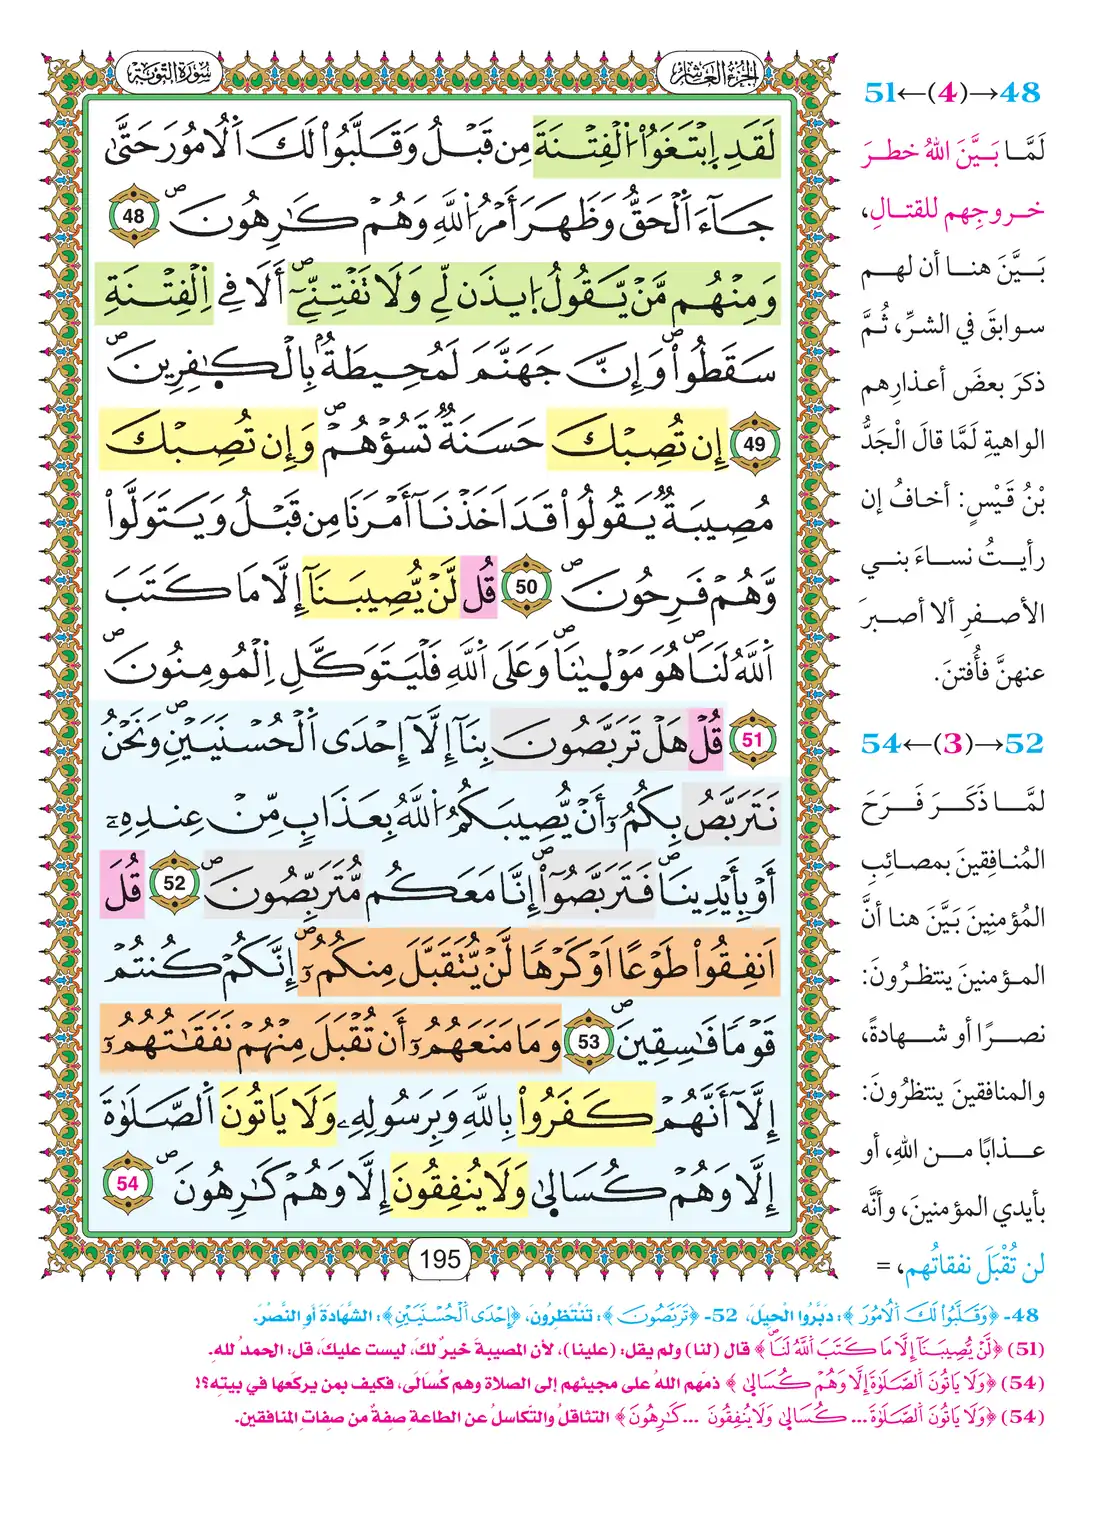 الجزء العاشر
سورة التوبة
لَقَدِ اِبْتَغَوُاْ اُلْفِتْنَةَ مِن قَبْلُ وَقَلَّبُواْ لَكَ اَلُامُورَ حَتَّىٰ
جَآءَ اَلْحَقُّ وَظَهَرَ أَمْرُ اُللَّهِ وَهُمْ كَٰرِهُونَۖ 48
وَمِنْهُم مَّنْ يَّقُولُ اُ۪يذَن لِّے وَلَا تَفْتِنِّےۖ أَلَا فِے اِلْفِتْنَةِ
سَقَطُواْۖ وَإِنَّ جَهَنَّمَ لَمُحِيطَةُۢ بِالْكٰ۪فِرِينَۖ
49 إِن تُصِبْكَ حَسَنَةٌ تَسُؤْهُمْۖ وَإِن تُصِبْكَ
مُصِيبَةٌ يَقُولُواْ قَدَ اَخَذْنَآ أَمْرَنَا مِن قَبْلُ وَيَتَوَلَّواْ
وَّهُمْ فَرِحُونَۖ 50 قُل لَّنْ يُّصِيبَنَآ إِلَّا مَا كَتَبَ
اَللَّهُ لَنَاۖ هُوَ مَوْل۪يٰنَاۖ وَعَلَى اَللَّهِ فَلْيَتَوَكَّلِ اِلْمُومِنُونَۖ
51 قُلْ هَلْ تَرَبَّصُونَ بِنَآ إِلَّآ إِحْدَى اَلْحُسْنَيَيْنِۖ وَنَحْنُ
نَتَرَبَّصُ بِكُمُۥٓ أَنْ يُّصِيبَكُمُ اُللَّهُ بِعَذَابٍ مِّنْ عِندِهِۦٓ
أَوْ بِأَيْدِينَاۖ فَتَرَبَّصُوٓاْۖ إِنَّا مَعَكُم مُّتَرَبِّصُونَۖ 52 قُلَ
اَنفِقُواْ طَوْعًا اَوْ كَرْهًا لَّنْ يُّتَقَبَّلَ مِنكُمُۥٓۖ إِنَّكُمْ كُنتُمْ
قَوْمًا فَٰسِقِينَۖ 53 وَمَا مَنَعَهُمُۥٓ أَن تُقْبَلَ مِنْهُمْ نَفَقَٰتُهُمُۥٓ
إِلَّآ أَنَّهُمْ كَفَرُواْ بِاللَّهِ وَبِرَسُولِهِۦ وَلَا يَاتُونَ اَلصَّلَوٰةَ
إِلَّا وَهُمْ كُسَال۪يٰ وَلَا يُنفِقُونَ إِلَّا وَهُمْ كَٰرِهُونَۖ 54
195
48→(4)←51
لَمَّا بَيَّنَ اللهُ خطرَ
خروجِهم للقتالِ،
بَيَّنَ هنا أن لهم
سوابقَ في الشرِّ، ثُمَّ
ذكرَ بعضَ أعذارِهم
الواهيةِ لَمَّا قالَ الْجَدُّ
بْنُ قَيْسٍ: أخافُ إن
رأيتُ نساءَ بني
الأصفرِ ألا أصبرَ
عنهنَّ فأُفتنَ.
52→(3)←54
لمَّا ذَكَرَ فَرَحَ
المُنافقينَ بمصائبِ
المُؤمنِينَ بَيَّنَ هنا أنَّ
المؤمنينَ ينتظرُونَ:
نصرًا أو شهادةً،
والمنافقينَ ينتظرُونَ:
عذابًا من اللهِ، أو
بأيدي المؤمنينَ، وأنَّه
لن تُقْبَلَ نفقاتُهم، =
48- ﴿وَقَلَّبُواْ لَكَ اَلُامُورَ﴾: دَبَّرُوا الْحِيَلَ، 52- ﴿تَرَبَّصُونَ﴾: تَنْتَظِرُونَ، ﴿إِحْدَى اَلْحُسْنَيَيْنِ﴾: الشَّهَادَةَ أَوِ النَّصْرَ.
(51) ﴿لَّنْ يُّصِيبَنَآ إِلَّا مَا كَتَبَ اَللَّهُ لَنَاۖ﴾ قال (لنا) ولم يقل: (علينا)، لأن المصيبةَ خيرٌ لكَ، ليست عليكَ، قل: الحمدُ للهِ.
(54) ﴿وَلَا يَاتُونَ اَلصَّلَوٰةَ إِلَّا وَهُمْ كُسَال۪يٰ﴾ ذمّهم اللهُ على مجيئهم إلى الصلاة وهم كُسَالَى، فكيف بمن يركعها في بيتِه؟!
(54) ﴿وَلَا يَاتُونَ اَلصَّلَوٰةَ... كُسَال۪يٰ وَلَا يُنفِقُونَ ...كَٰرِهُونَ﴾ التثاقلُ والتَّكاسلُ عن الطاعةِ صِفةٌ من صفاتِ المنافقين.